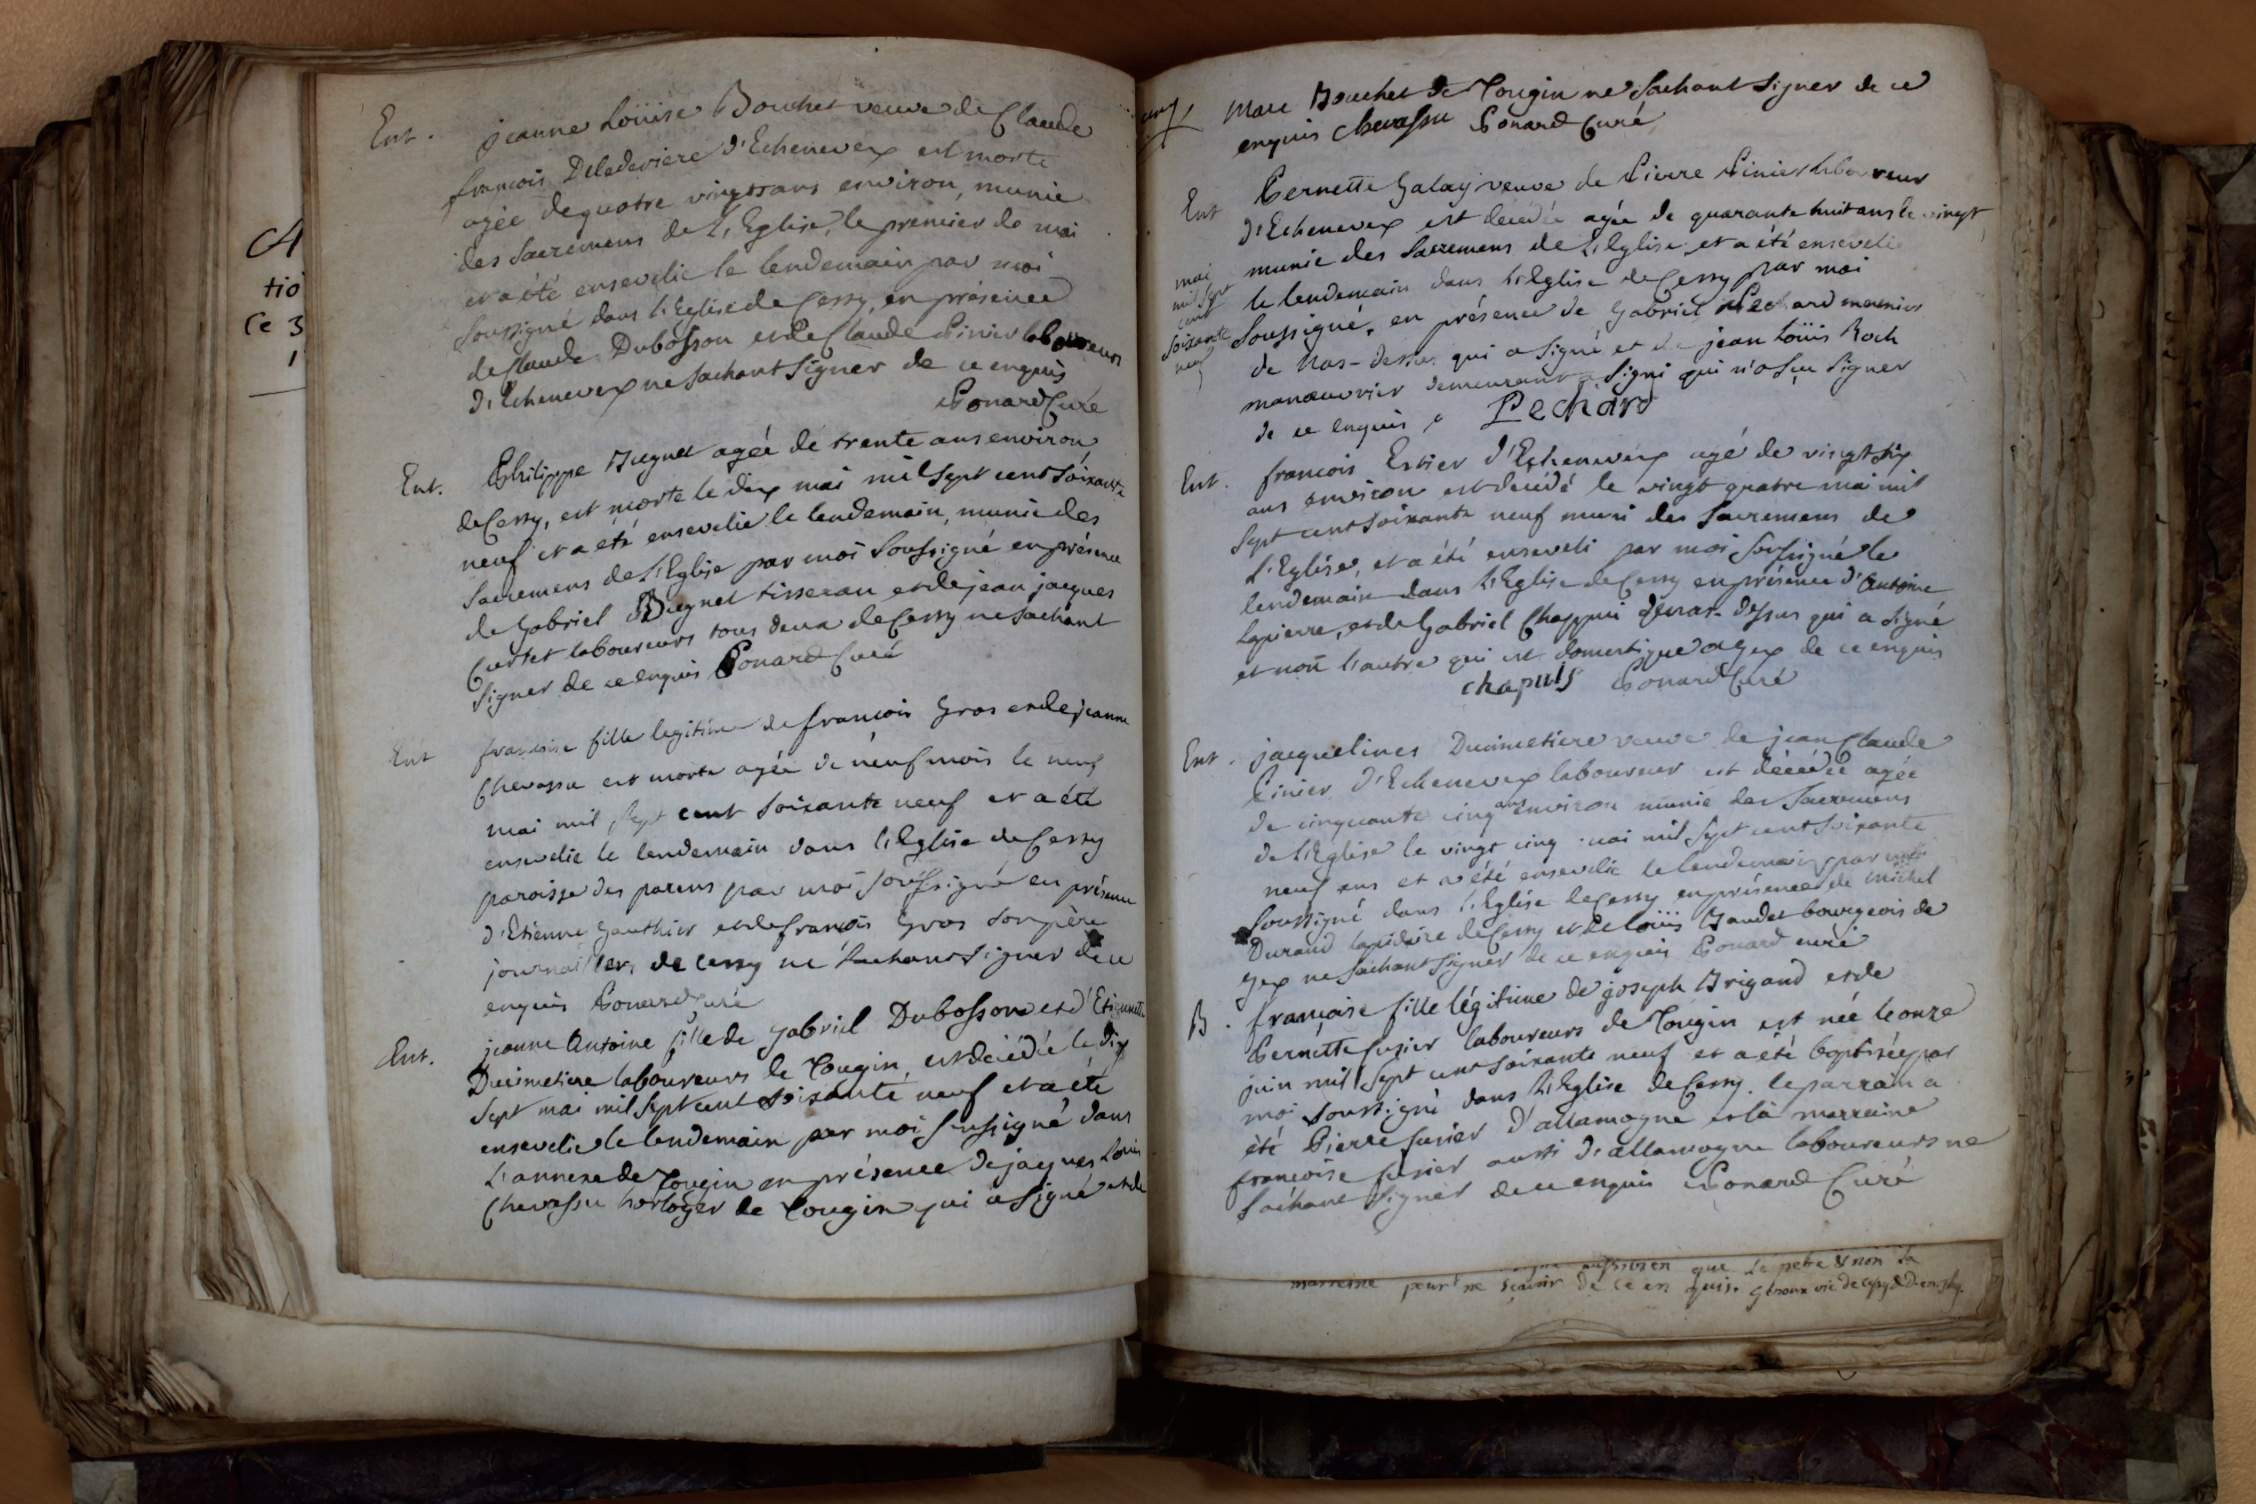 Ent. jeanne Loüise Bouchet veuve de Claude
françois Deladeviere d'Echenevex est morte
agée de quatre vingts ans environ, munie
des Sacremens de L'Eglise, le premier de mai
et a été ensevelie le lendemain par moi
soussigné dans L'Eglise de Cessy, en présence
de Claude Dubosson et de Claude Pinier laboureurs
d'Echenevex ne sachant signer de ce enquis
Ponard Curé
Ent. Philippe Hugnet agée de trente ans environ
de Cessy, est morte le dix mai mil sept cent soixante
neuf et a été ensevelie le lendemain, munie des
Sacremens de L'Eglise par moi soussigné en présence
de Gabriel Hugnet tisseran et de jean jacques
Curtet laboureurs tous deux de Cessy ne sachant
signer de ce enquis Ponard Curé
Ent françoise fille legitime de françois Gros et de jeanne
Chevassu est morte agée de neuf mois le neuf
mai mil sept cent soixante neuf et a été
ensevelie le lendemain dans l'Eglise de Cessy
paroisse des parens par moi soussigné en présence
d'Etienne Gauthier et de françois Gros son père
journaliers de Cessy ne sachant signer de ce
enquis Ponard Curé
Ent. jeanne Antoine fille de Gabriel Dubosson et d'Etiennette
Ducimetiere laboureurs de Tougin, est décédée le dix
sept mai mil sept cent soixante neuf et a été
ensevelie le lendemain par moi soussigné dans
L'annexe de Tougin en présence de jacques Louis
Chevassu horloger de Tougin qui a signé et de
Marc Bouchet de Tougin ne sachant signer de ce
enquis chevassu Ponard Curé
Ent Pernette Galay veuve de Pierre Pinier laboureur
d'Echenevex est decédée agée de quarante huit ans le vingt
mai
mil sept
cent
soixante
neuf
munie des Sacremens de L'Eglise et a été ensevelie
le lendemain dans L'Eglise de Cessy par moi
soussigné, en présence de Gabriel Pechard meunier
de Nas-dessus qui a signé et de jean Loüis Roch
manoeuvrier demeurant a Signi qui n'a sçu signer
de ce enquis, Pechard
Ent. françois Estier d'Echenevex agé de vingt six
ans environ est decédé le vingt quatre mai mil
sept cent soixante neuf muni des Sacremens de
L'Eglise, et a été enseveli par moi soussigné le
lendemain dans L'Eglise de Cessy en présence d'Antoine
Lapierre, et de Gabriel Chappuis de nas-dessus qui a signé
et non l'autre qui est domestique a gex de ce enquis
chapuis Ponard Curé
Ent. jacqueline Ducimetiere veuve de jean Claude
Pinier d'Echenevex laboureur est décédée agée
de cinquante cinq ans environ munie des Sacremens
de L'Eglise le vingt cinq mai mil sept cent soixante
neuf et a été ensevelie le lendemain par moi
soussigné dans L'Eglise de Cessy en présence de Michel
Durand lapidaire de Cessy et de Loüis Haudet bourgeois de
Gex ne sachant signer de ce enquis Ponard curé
B. françoise fille légitime de joseph Brigand et de
Pernette fusier laboureurs de Tougin est née le onze
juin mil sept cent soixante neuf et a été baptisée par
moi soussigné dans L'Eglise de Cessy. le parrain a
été Pierre fusier d'allamogne et la marraine
françoise fusier aussi d'allamogne laboureurs ne
sachant signer de ce enquis Ponard Curé
aussi bien que le pere & non la
marreine pour ne sçavoir de ce en quis.